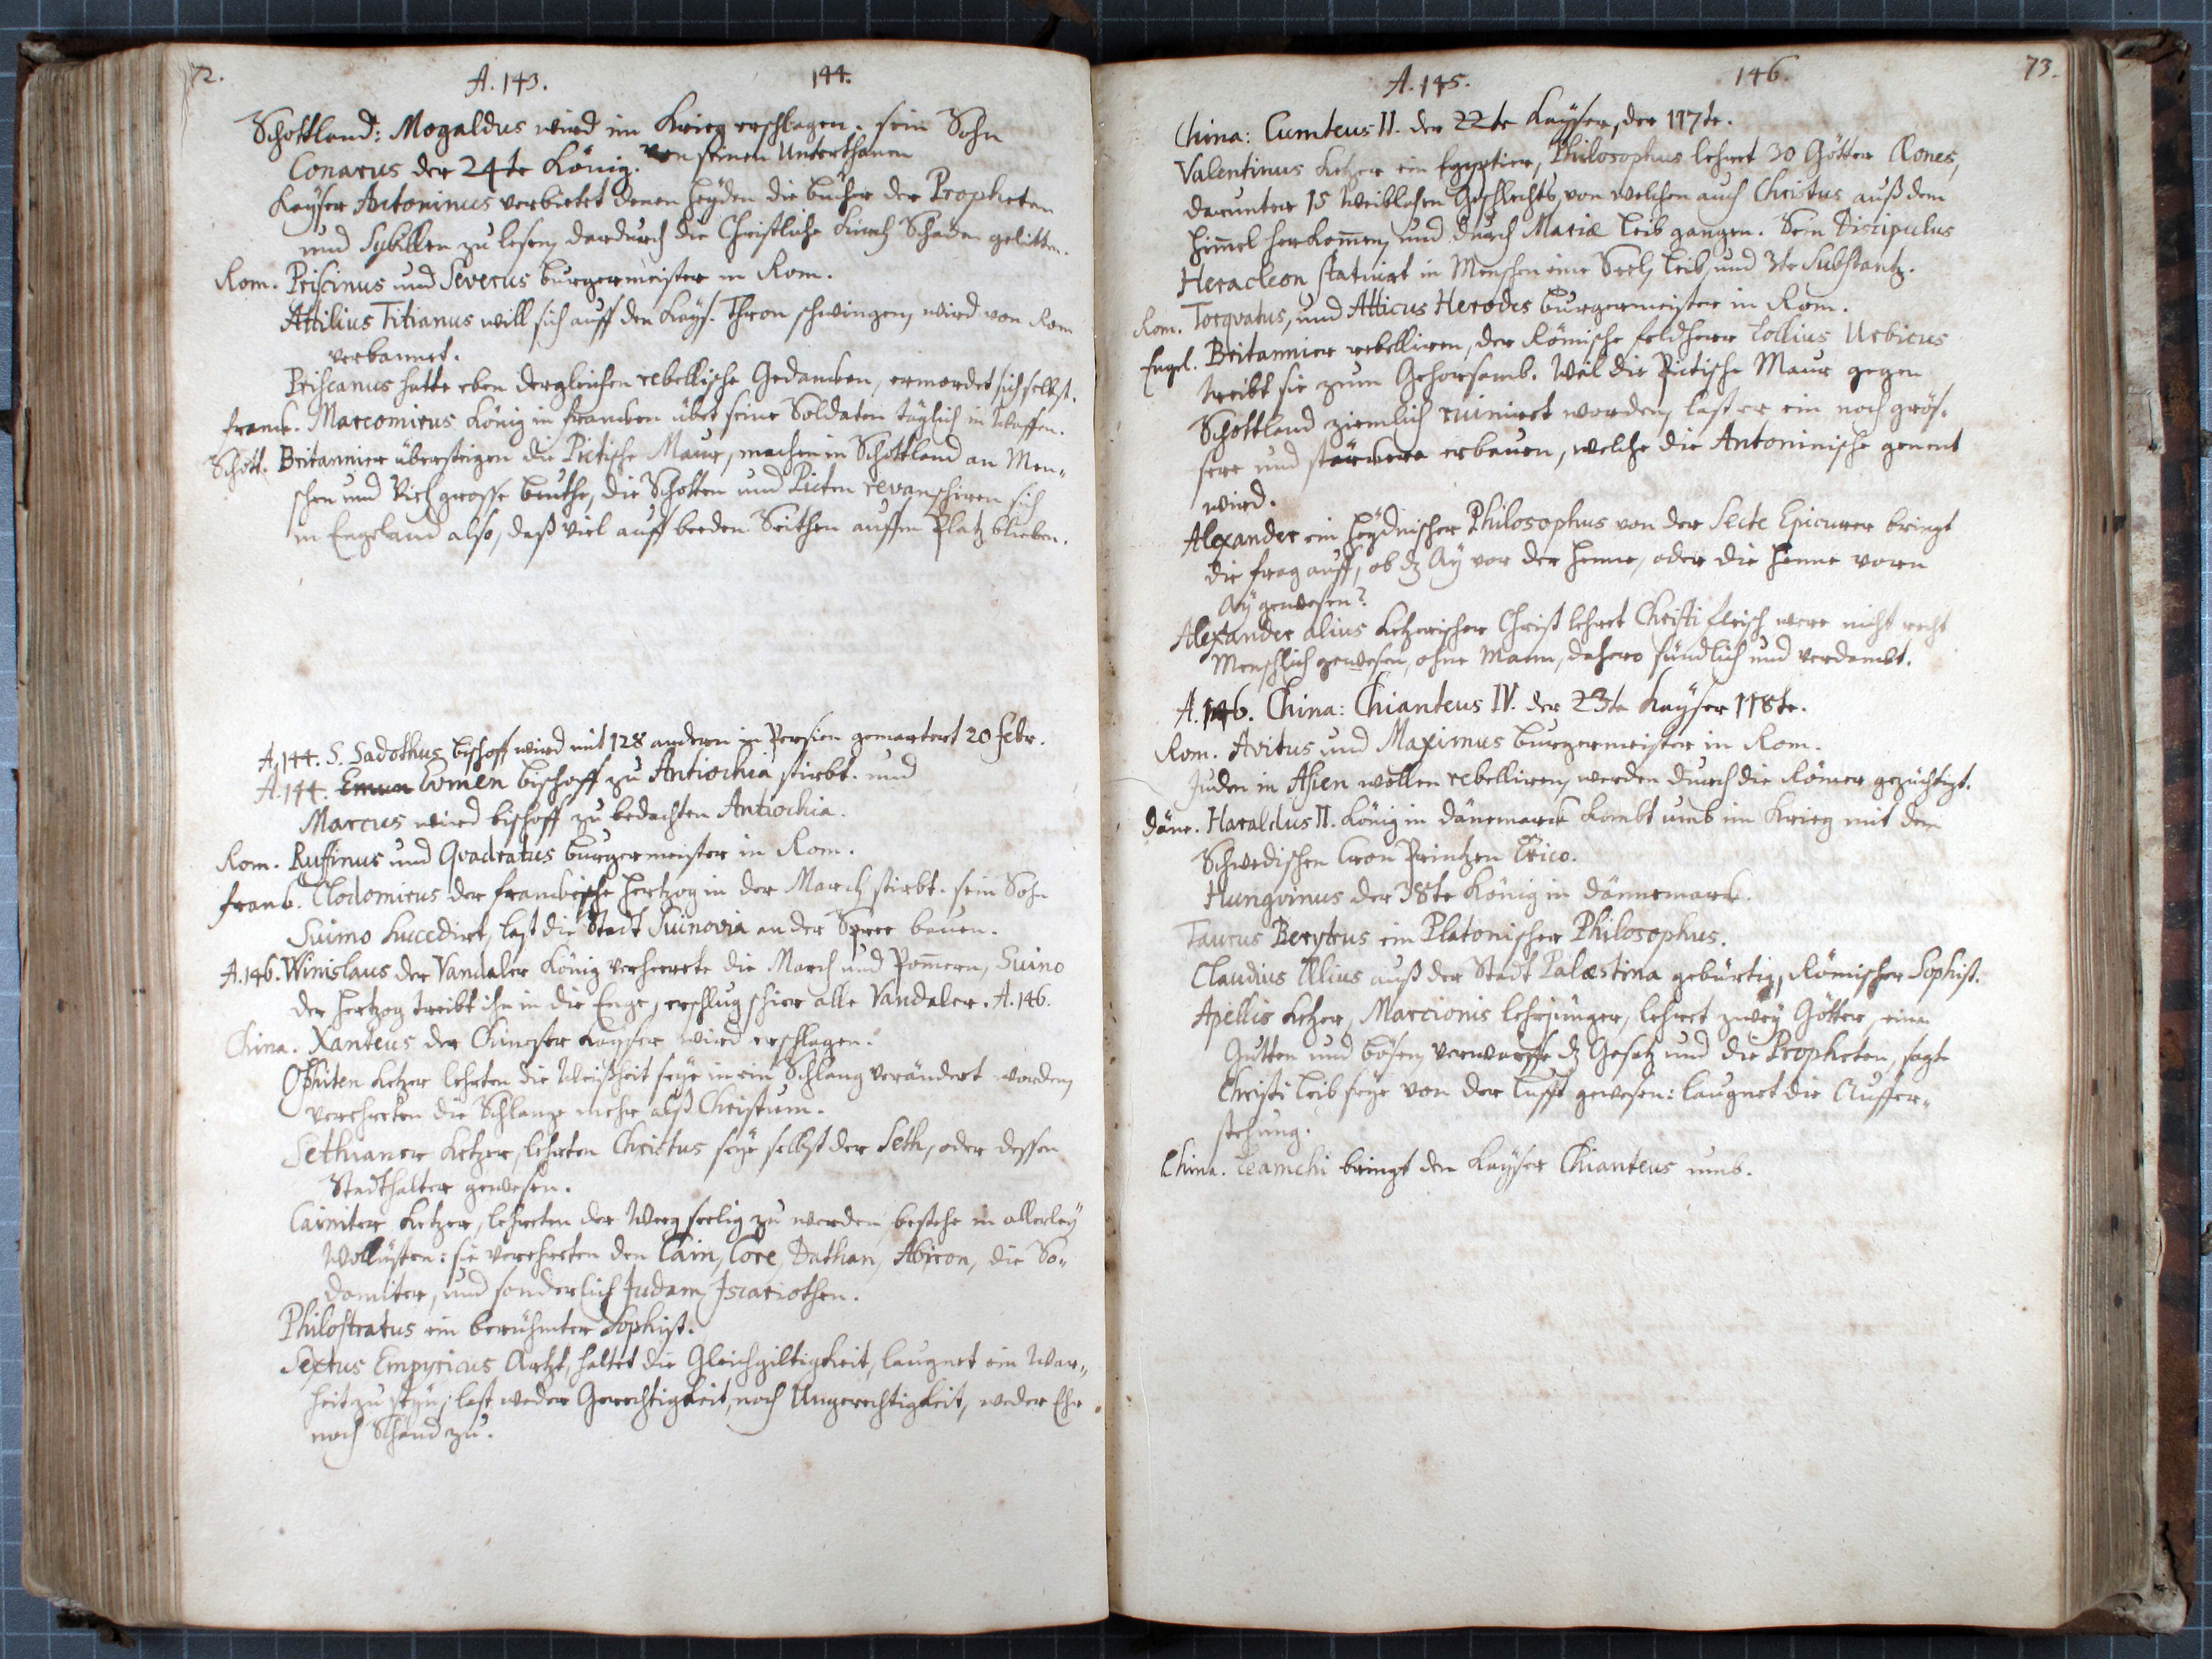 72.
A. 143. 144.
Schottland: Mogaldus wird im Krieg erschlagen. sein Sohn
Conarus der 24te König. von seinen Unterthanen
Kayser Antoninus verbietet denen Heyden die bücher der Propheten
und Sybillen zu lesen, dardurch die Christliche Kirch Schaden gelitten.
Rom. Priscinus und Severus burgermeister in Rom.
Attilius Titianus will sich auff den Kays. Thron schwingen, wird von Rom
verbannet.
Priscanus hatte eben dergleichen rebellische Gedancken, ermordet sich selbst.
Franck. Marcomirus König in Francken übet seine Soldaten täglich in Waffen.
Schott. Britannier übersteigen die Pictische Maur, machen in Schottland an Men-
schen und Viech grosse beuthe, die Schotten und Picten revanschiren sich
in Engeland also, daß viel auff beeden Seithen auffm Platz blieben.
A. 144. S. Sadothus bischoff wird mit 128 andern in Persien gemartert 20 Febr.
A. 144. Emun Eomen bischoff zu Antiochia stirbt. und
Marcus wird bischoff zu bedachten Antiochia.
Rom. Ruffinus und Qvadratus burgermeister in Rom.
Franck. Clodomirus der Franckische Hertzog in der March stirbt. sein Sohn
Suimo succedirt, last die Stadt Suinovia an der Spree bauen.
A. 146. Winislaus der Vandaler König verheerete die March und Pom̄ern, Suino
der Hertzog treibt ihn in die Enge, erschlug schier alle Vandaler. A. 146.
China. Xanteus der Chineser Kayser wird erschlagen.
Ophiten Ketzer lehrten die Weißheit seye in ein Schlang verändert worden,
verehreten die Schlange mehr alß Christum.
Sethianer Ketzer, lehrten Christus seye selbst der Seth, oder dessen
Stadthalter gewesen.
Cainiter Ketzer, lehreten der Weeg seelig zu werden bestehe in allerley
Wollüsten: sie verehreten den Cain, Core, Dathan, Abiron, die So-
domiter, und sonderlich Judam Iscariothen.
Philostratus ein berühmter Sophist.
Sextus Empyricus Artzt, haltet die Gleichgiltigkeit, laugnet ein War-
heit zu seyn, last weder Gerechtigkeit, noch Ungerechtigkeit, weder Ehr
noch Schand zu.
73.
A. 145. 146.
China: Cumteus II. der 22te Kayser, der 117te.
Valentinus Ketzer ein Egyptier, Philosophus lehret 30 Götter Æones,
darunter 15 Weiblichen Geschlechts von welchen auch Christus auß dem
Him̄el herkom̄en, und durch Mariæ Leib gangen. Sein Discipulus
Heracleon statuirt in Menschen eine Seel, Leib, und 3te Substantz.
Rom. Torqvatus, und Atticus Herodes burgermeister in Rom.
Engel. Britannier rebelliren, der Römische Feldherr Lollius Urbicus
treibt sie zum Gehorsamb. Weil die Pictische Maur gegen
Schottland ziemlich ruiniret worden, last er ein noch grös-
sere und stärckere erbauen, welche die Antoninische genent
wird.
Alexander ein Heydnischer Philosophus von der Secte Epicurer bringt
die Frag auff, ob dz Ay vor der Henne, oder die Henne vorn
Ay gewesen?
Alexander alius Ketzerischer Christ lehret Christi Fleisch were nicht recht
Menschlich gewesen, ohne Mann, dahero sündlich und verdambt.
A. 146. China: Chianteus IV. der 23te Kayser 118te.
Rom. Avitus und Maximus burgermeister in Rom.
Juden in Asien wollen rebelliren, werden durch die Römer gezüchtigt.
Däne. Haraldus II. König in Dänemarck kombt umb im Krieg mit dem
Schwedischen Cron Printzen Erico.
Hungvinus der 38te König in Dännemarck.
Taurus Berytus ein Platonischer Philosophus.
Claudius Ælius auß der Stadt Palæstina gebürtig, Römischer Sophist.
Apellis Ketzer, Marcionis lehrjünger, lehret zwey Götter, einen
Gutten und bösen, verwarffe dz Gesatz und die Propheten, sagte
Christi Leib seye von der Lufft gewesen: laugnet die Auffer-
stehung.
China. Leamchi bringt den Kayser Chianteus umb.